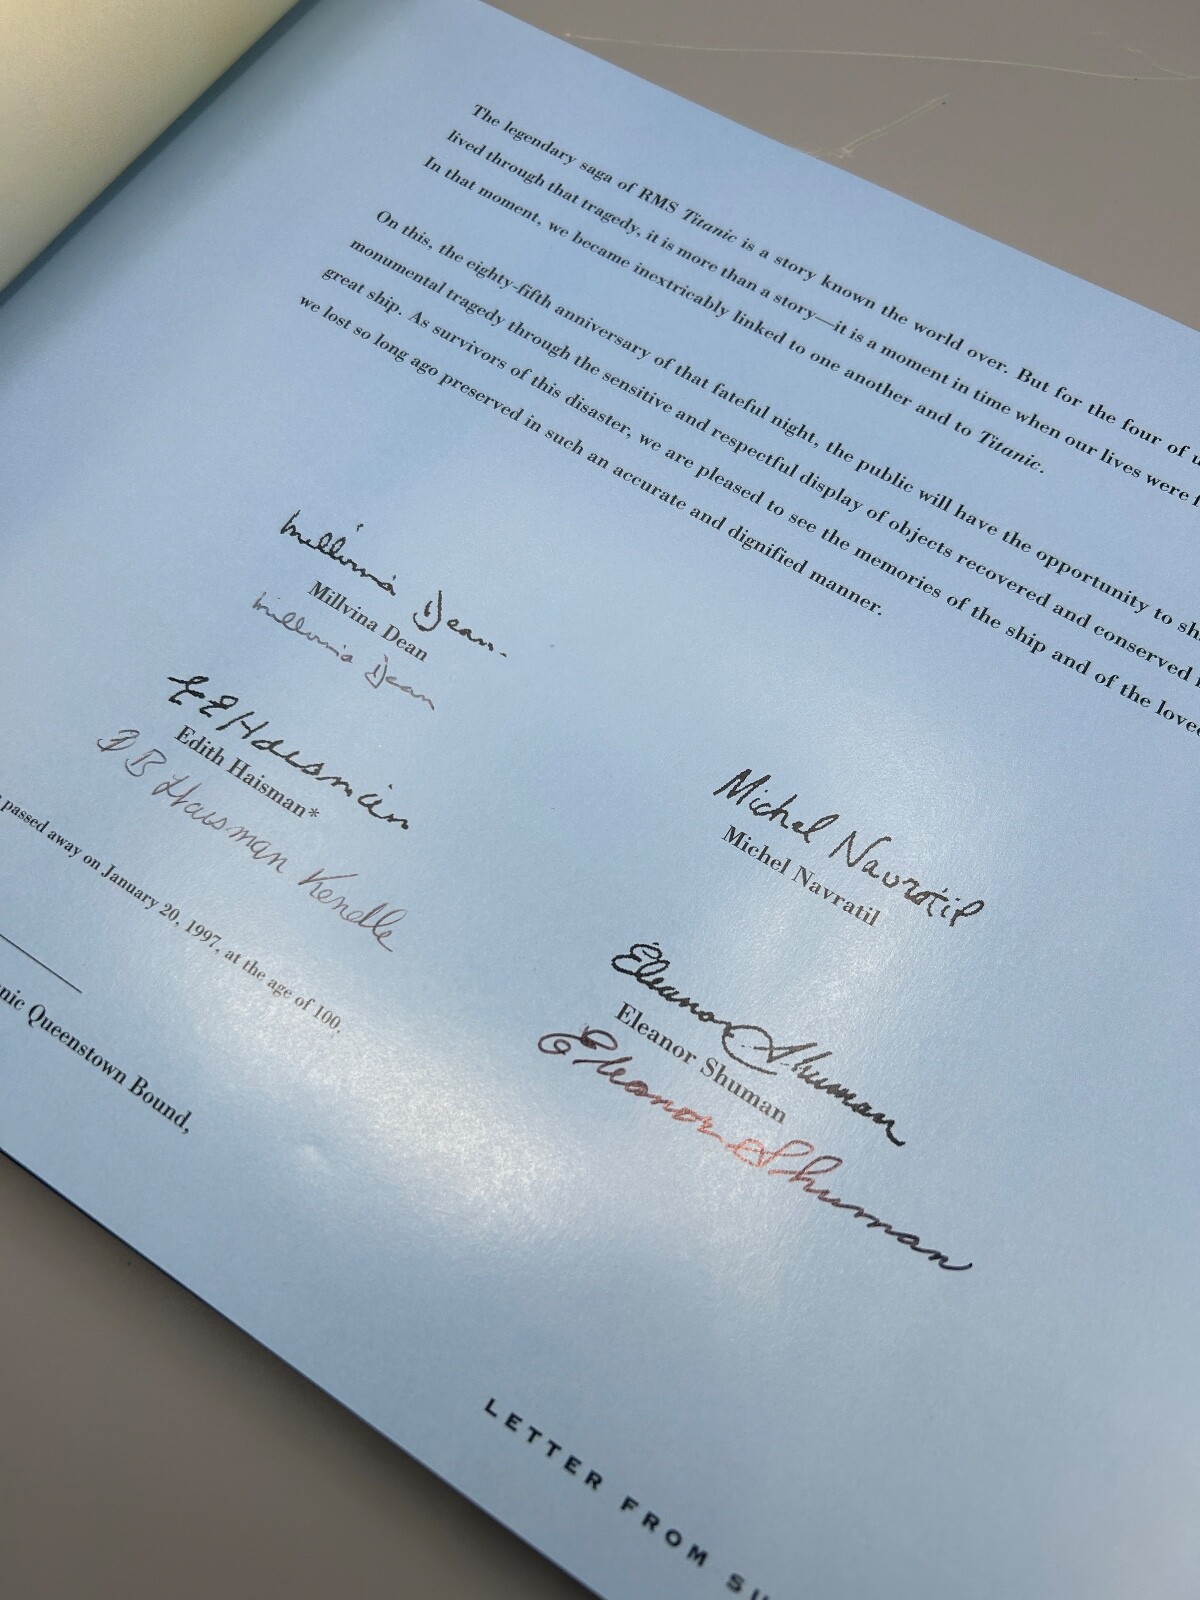 The legendary saga of RMS Titanic is a story known the world over. But for the four of
lived through that tragedy, it is more than a story—it is a moment in time when our lives were
In that moment, we became inextricably linked to one another and to Titanic.
On this, the eighty-fifth anniversary of that fateful night, the public will have the opportunity to
monumental tragedy through the sensitive and respectful display of objects recovered and conserved
great ship. As survivors of this disaster, we are pleased to see the memories of the ship and of the loved
we lost so long ago preserved in such an accurate and dignified manner.
Millvina Dean.
Millvina Dean
Millvina Dean
E E Haisman
Edith Haisman*
Haisman Kendle
passed away on January 20, 1997, at the age of 100.
Queenstown Bound,
Michel Navratil
Michel Navratil
Eleanor Shuman
Eleanor Shuman
Eleanor Shuman
LETTER FROM